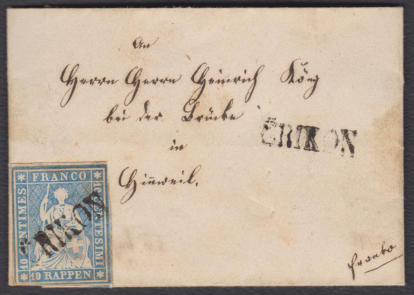 An
Herrn Herrn Heinrich König
bei der Brücke
in
Hinweil.
ERIKON
FRANCO
10 CENTIMES
10 CENTESIMI
10 RAPPEN
RIKON
franko